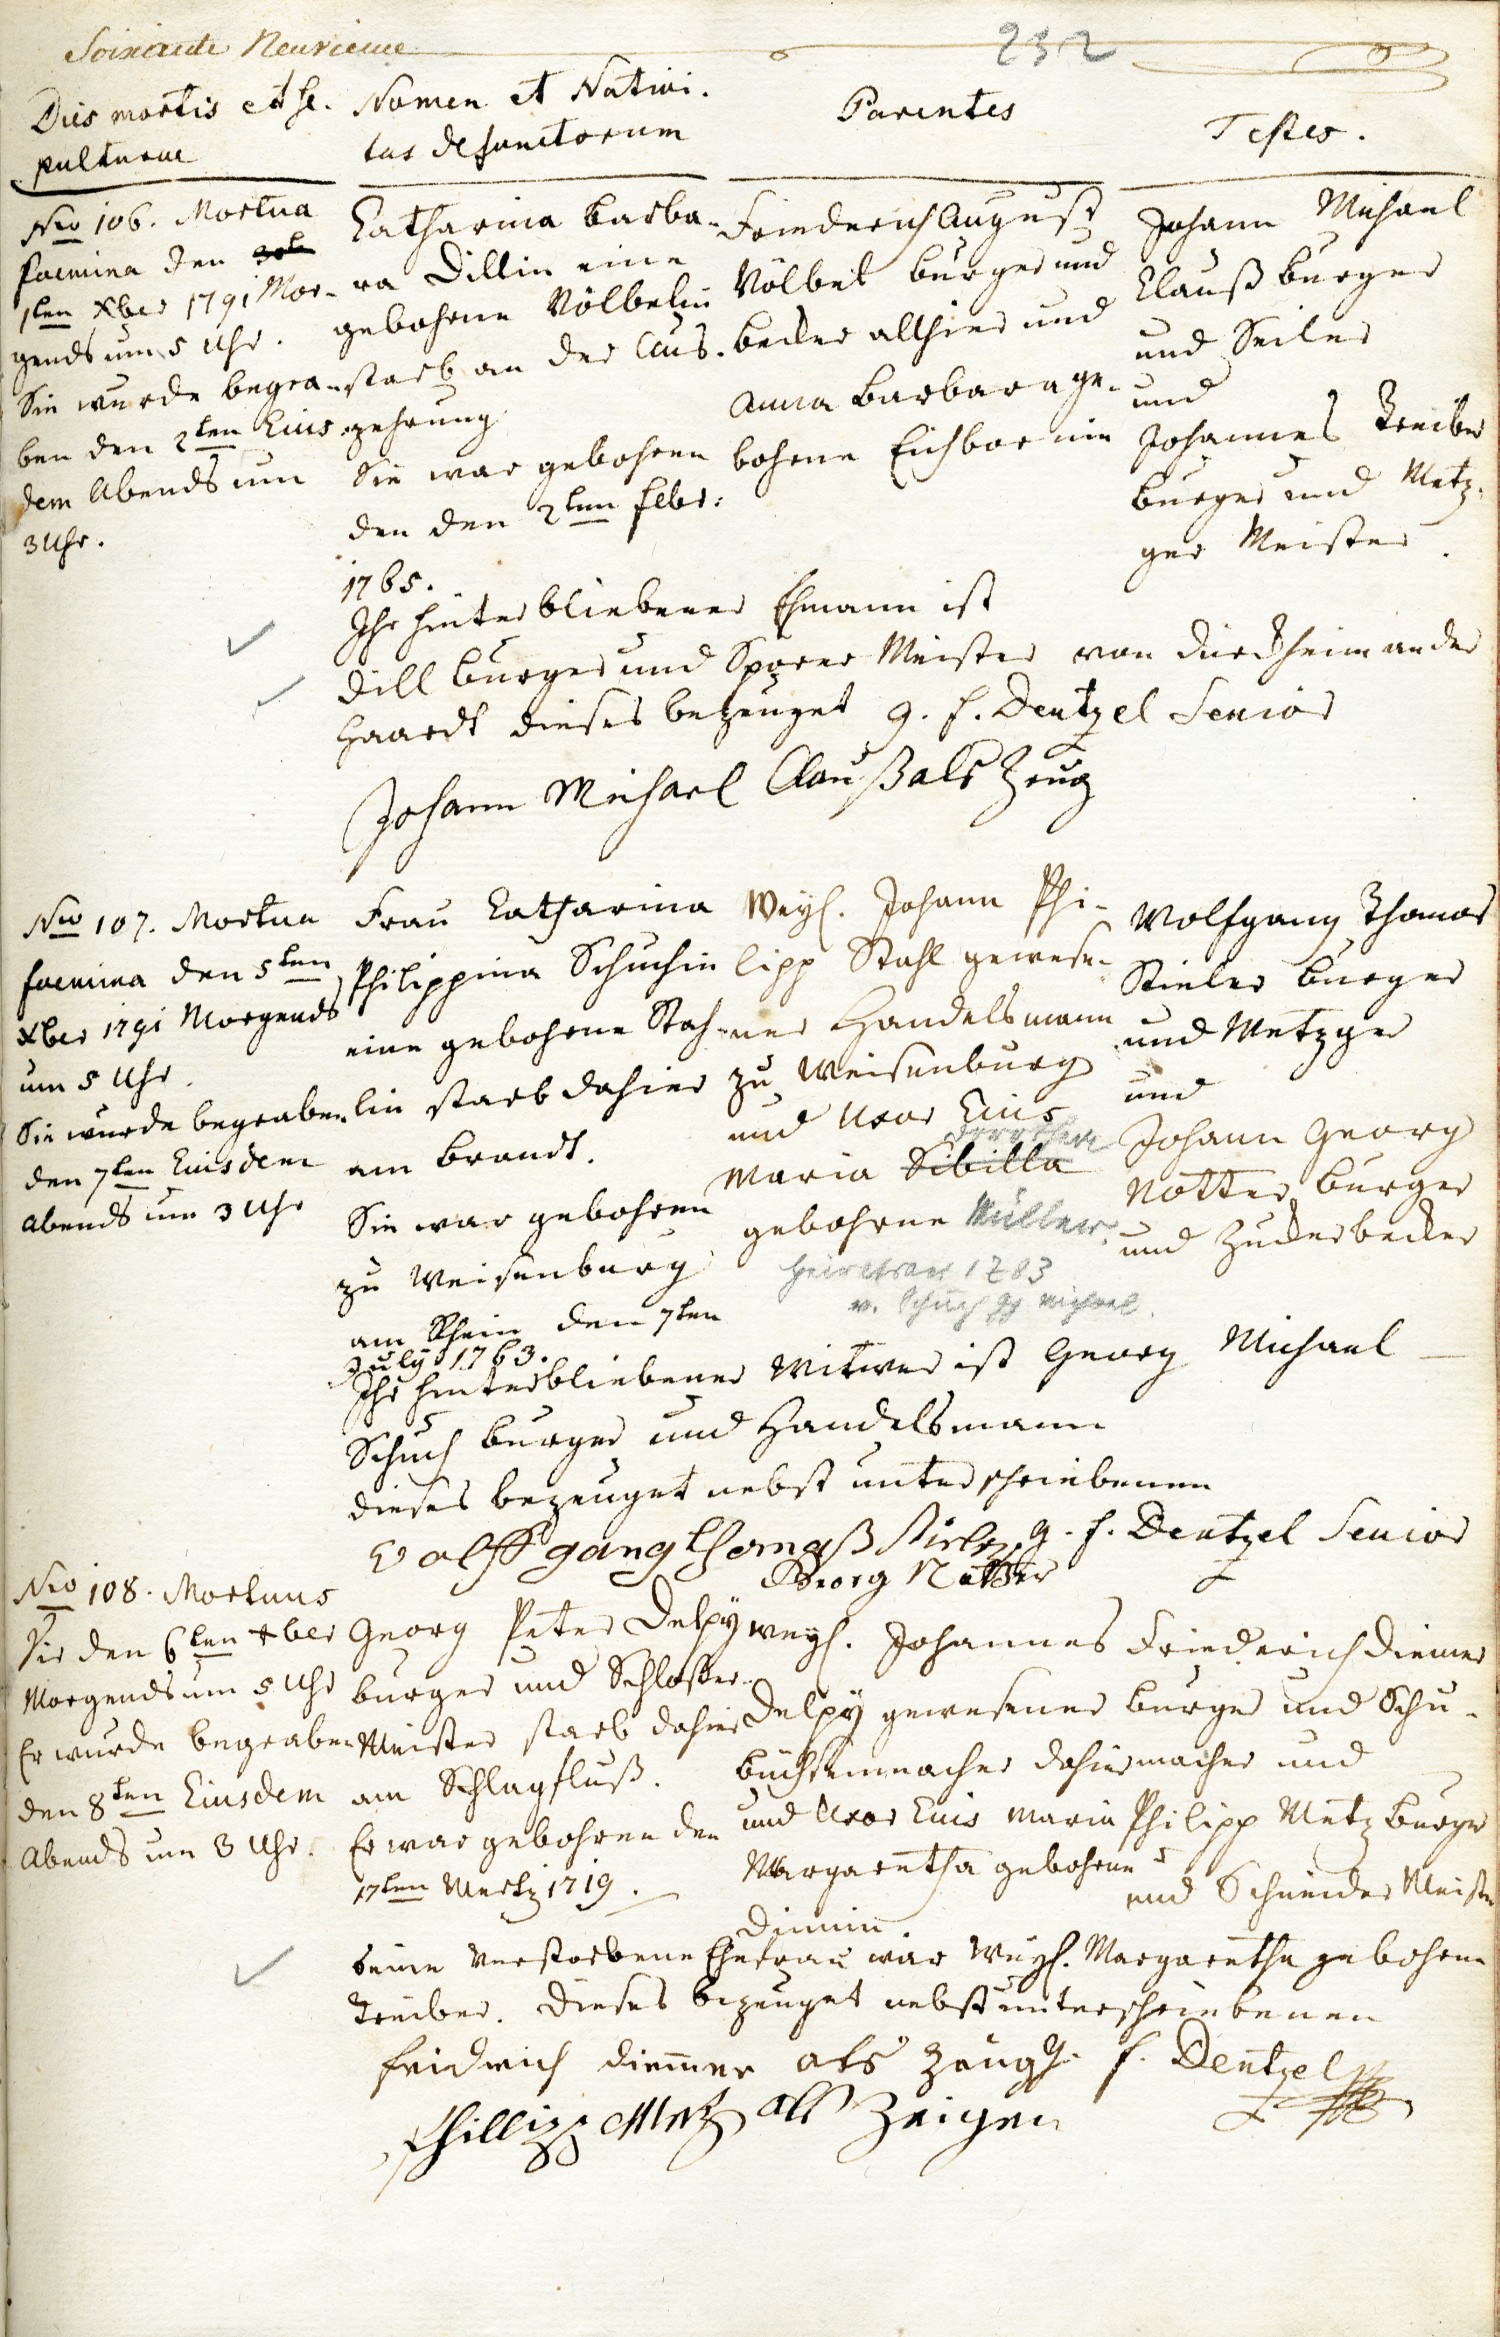 Soixante Neuvieme
232
Dies mortis et se-
pulturae
Nomen et Nativi-
tas defunctorum
Parentes
Testes.
Nro 106. Mortua
foemina den
1ten Xber 1791 Mor-
gends um 5 Uhr.
Sie wurde begra-
ben den 2ten Eius-
dem Abends um
3 Uhr.
Catharina Barba-
ra Dillin eine
gebohrne Völbelin
starb an der Aus-
zehrung
Sie war gebohren
den den 2ten Febr:
1765.
Friederich August
Völbel burger und
becker allhier und
Anna Barbara ge-
bohrne Eichbornin
Johann Michael
Clauß burger
und Seiler
und
Johannes Treiber
burger und Metz-
ger Meister.
Ihr hinterbliebener Ehmann ist
Dill burger und Sporer Meister von Dürckheim an der
Haardt dieses bezeuget G. F. Dentzel Senior
Johann Michael Clauß als Zeug
Nro 107. Mortua
foemina den 5ten
Xber 1791 Morgends
um 5 Uhr.
Sie wurde begraben
den 7ten Eiusdem
Abends um 3 Uhr
Frau Catharina
Philippina Schuchin
eine gebohrne Stah-
lin starb dahier
am brandt.
Sie war gebohren
zu Weisenburg
am Rhein den 7ten
July 1763.
Weyl. Johann Phi-
lipp Stahl gewese-
ner Handelsmann
zu Weisenburg
und Uxor Eius
Dorothea
Maria Sibilla
gebohrne Müller.
Heirathet 1783
v. Schuch Gg Michael.
Wolfgang Thomas
Stieler burger
und Metzger
und
Johann Georg
Notter burger
und Zuckerbecker
Ihr hinterbliebener Witwer ist Georg Michael
Schuch burger und Handelsmann
dieses bezeuget nebst unterschriebenen
Wolffgang Thomaß Stieler G. F. Dentzel Senior
Georg Notter
Nro 108. Mortuus
Vir den 6ten Xber
Morgends um 5 Uhr
Er wurde begraben
den 8ten Eiusdem
Abends um 3 Uhr.
Georg Peter Delpy
burger und Schlosser-
Meister starb dahier
am Schlagfluß.
Er war gebohren den
17ten Mertz 1719.
weyl. Johannes
Delpy gewesener
büchsenmacher dahier
und Uxor Eius Maria
Margaretha gebohrne
Dinnin.
Friederich Diemer
burger und Schu-
macher und
Philipp Metz burger
und Schneider Meister
Seine verstorbene Ehefrau war Weyl. Margaretha gebohrne
Treiber. Dieses bezeuget nebst unterschriebenen
fridrich diemer als Zeug G. F. Dentzel
Phillipp Metz als Zeigen